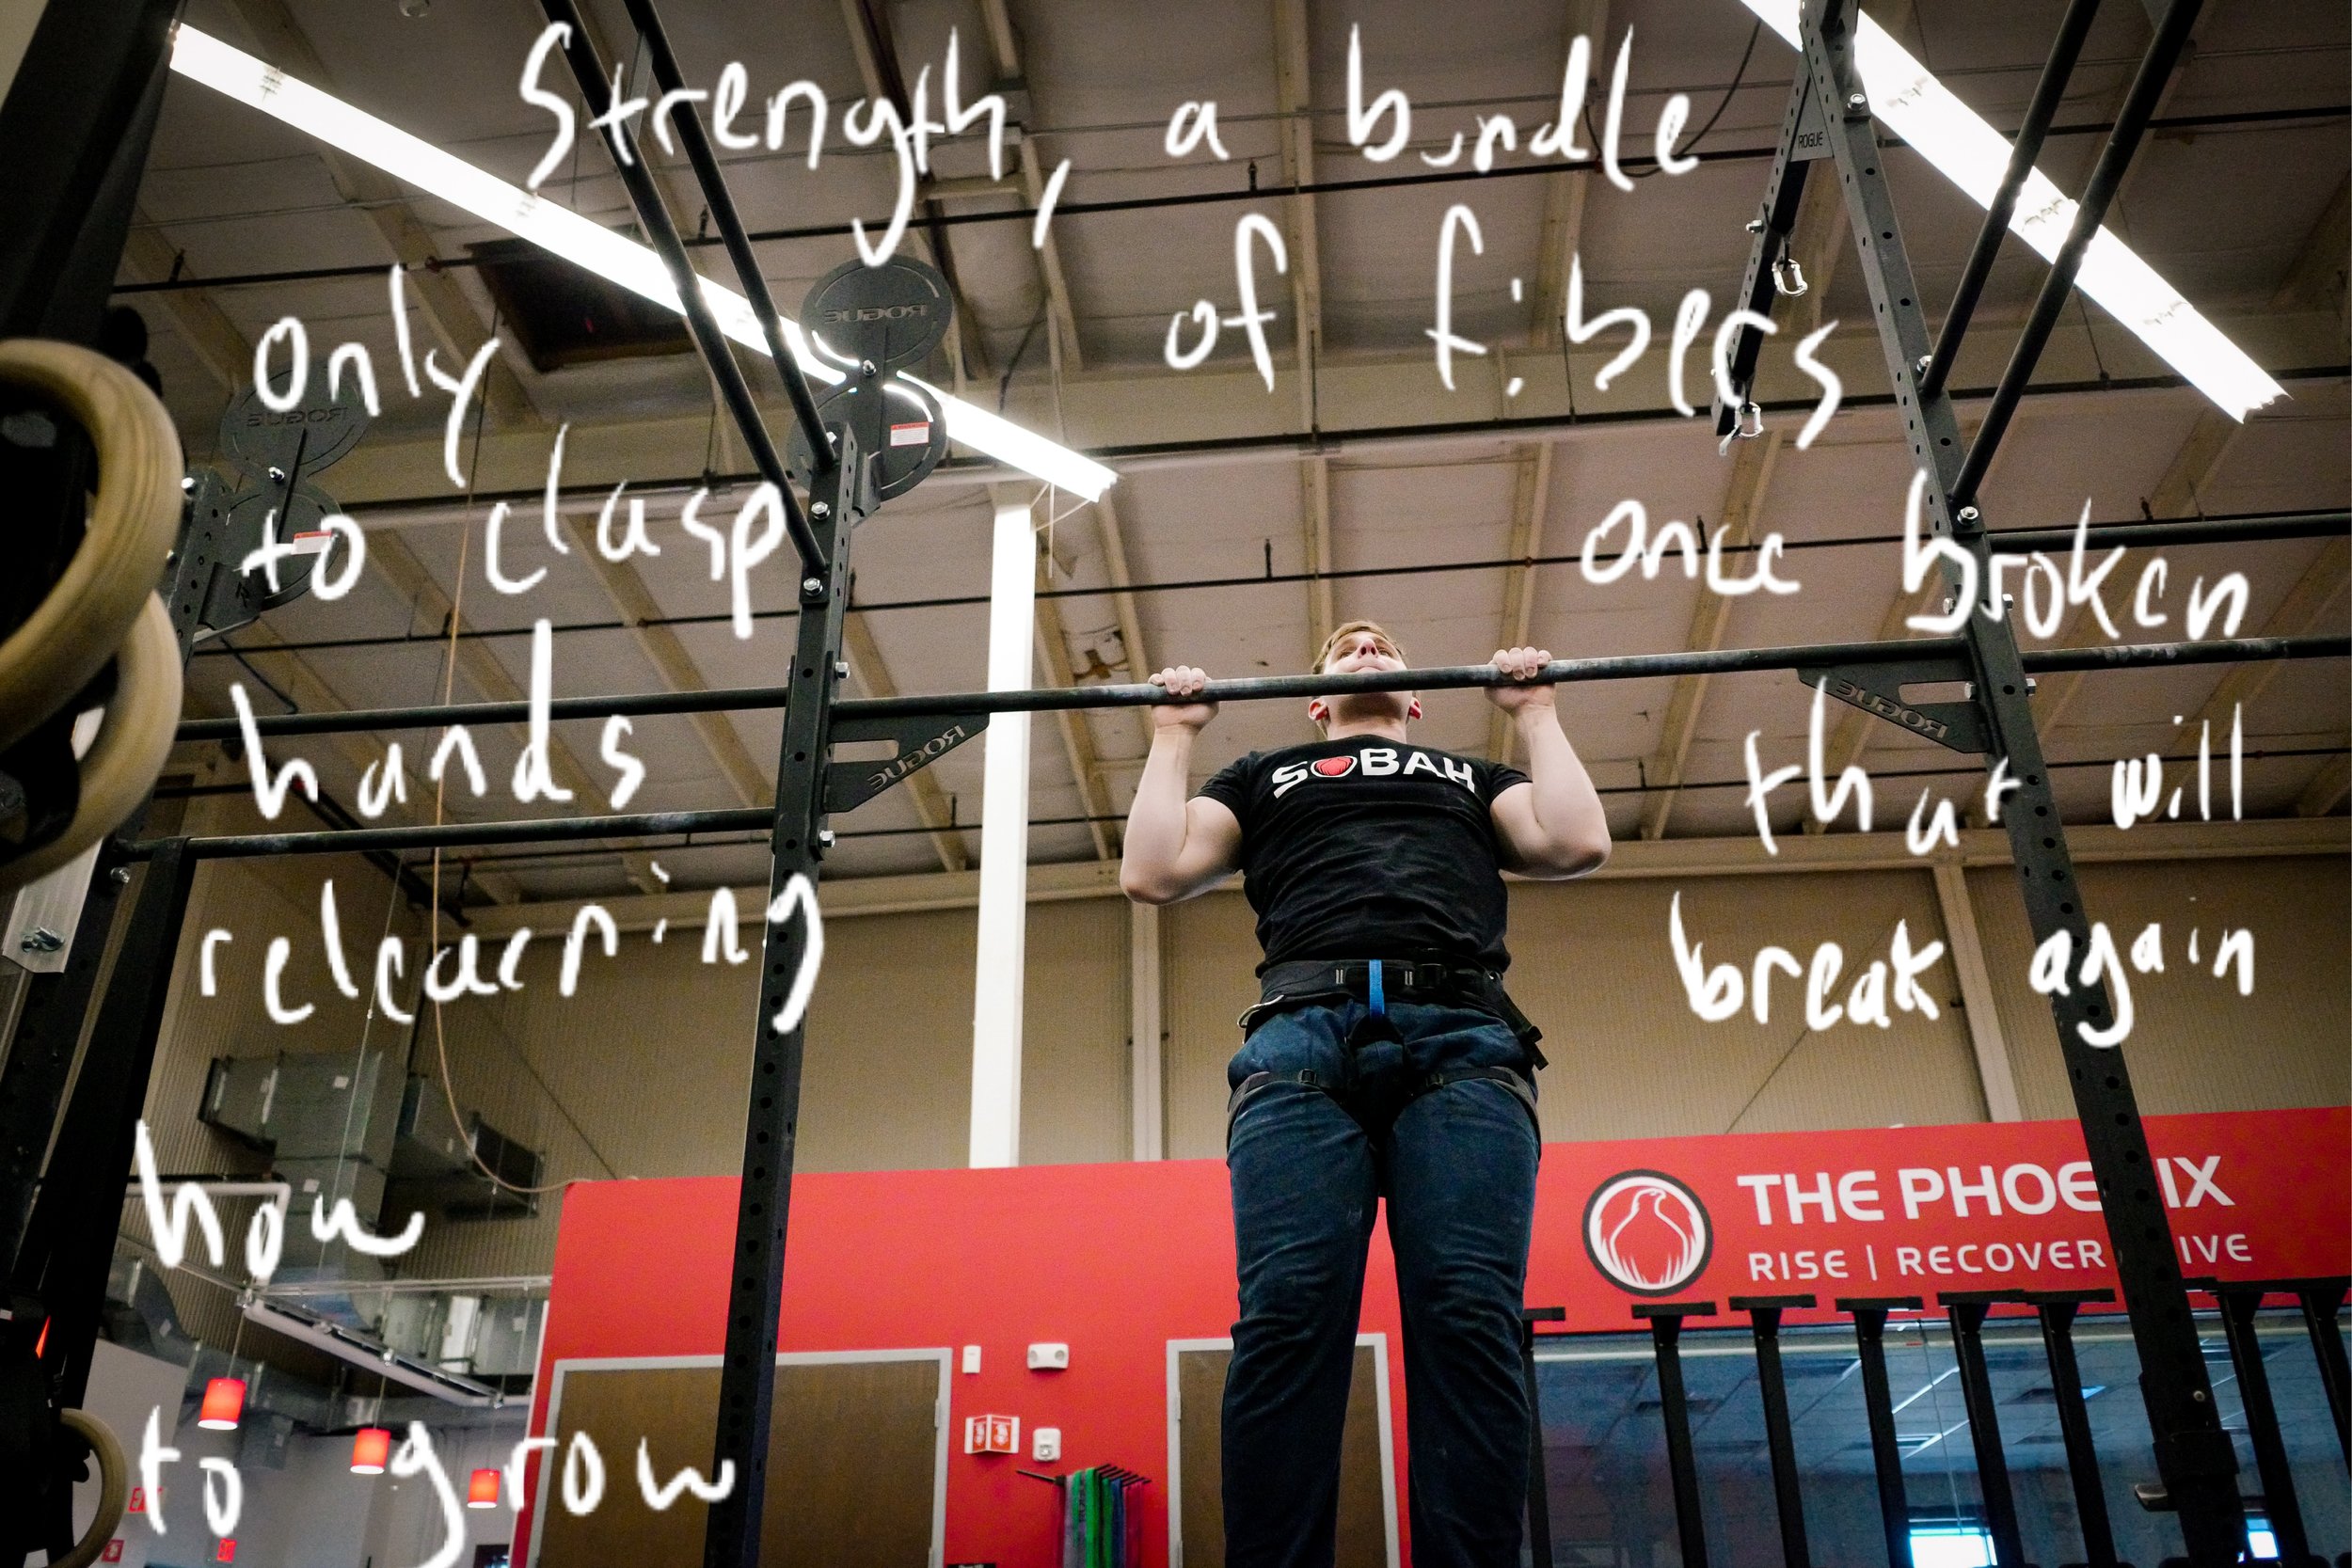 Strength, a bundle
of fibers
once broken
that will
break again
only
to clasp
hands
relearning
how
to grow
ROGUE
ROGUE
ROGUE
ROGUE
ROGUE
SOBAH
THE PHOENIX
RISE | RECOVER
IVE
EXIT